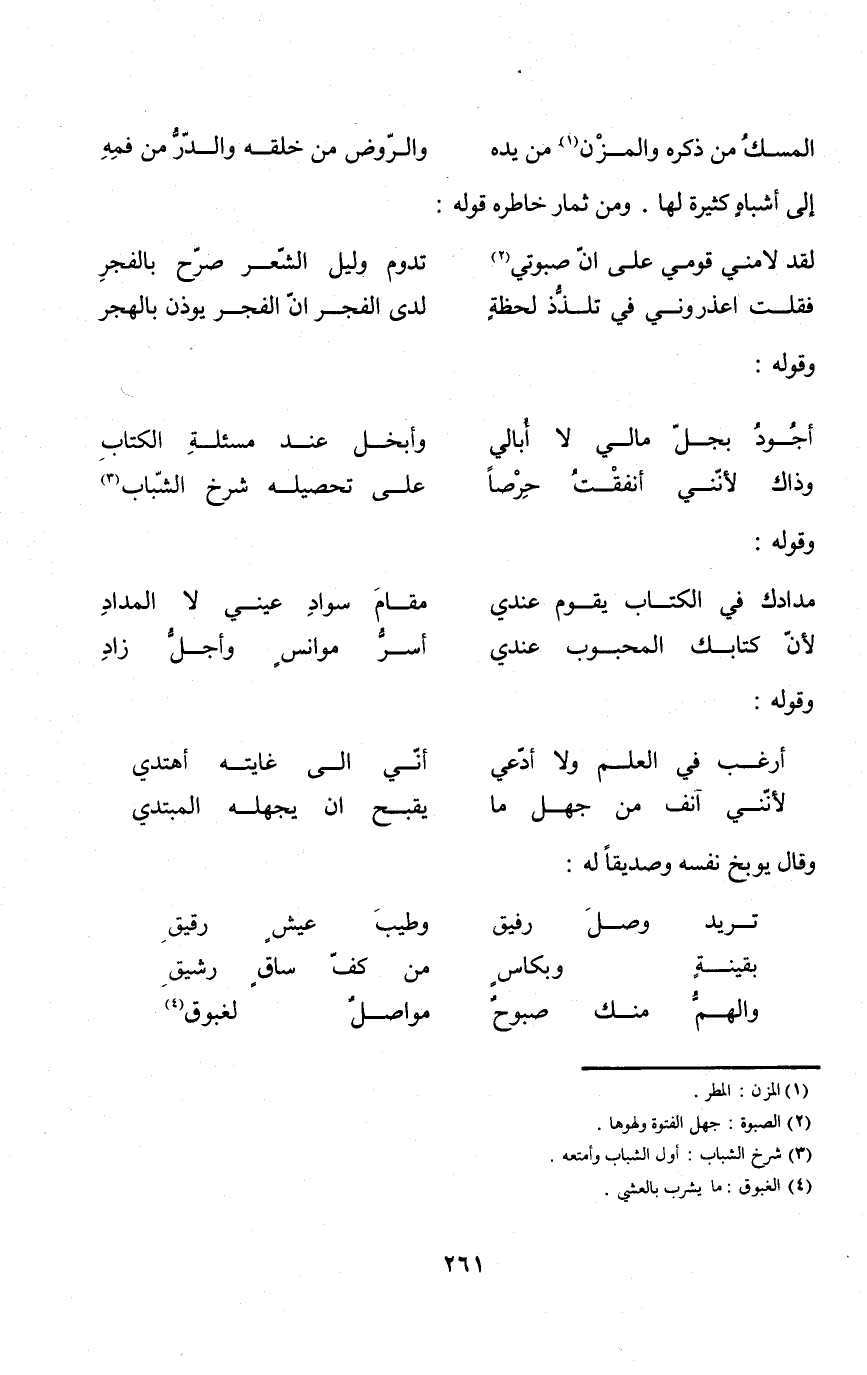 المسكُ من ذكره والمــزْن(١) من يده والرّوض من خلقه والدّرُّ من فمِهِ
إلى أشباهٍ كثيرة لها . ومن ثمار خاطره قوله :
لقد لامني قومي على انّ صبوتي(٢) تدوم وليل الشّعر صرّح بالفجرِ
فقلت اعذروني في تلذُّذ لحظةٍ لدى الفجر انّ الفجر يوذن بالهجر
وقوله :
أجُودُ بجلّ مالي لا أُبالي وأبخل عند مسئلةِ الكتابِ
وذاك لأنّني أنفقْتُ حِرْصاً على تحصيله شرخ الشّباب(٣)
وقوله :
مدادك في الكتاب يقوم عندي مقامَ سوادِ عيني لا المدادِ
لأنّ كتابك المحبوب عندي أسرُّ موانسٍ وأجلُّ زادِ
وقوله :
أرغب في العلم ولا أدّعي أنّي الى غايته أهتدي
لأنّني آنف من جهل ما يقبح ان يجهله المبتدي
وقال يوبخ نفسه وصديقاً له :
تريد وصلَ رفيق وطيبَ عيشٍ رقيقِ
بقينةٍ وبكاسٍ من كفّ ساقٍ رشيقِ
والهمُّ منك صبوحٌ مواصلٌ لغبوق(٤)
(١) المزن : المطر .
(٢) الصبوة : جهل الفتوة ولهوها .
(٣) شرخ الشباب : أول الشباب وأمتعه .
(٤) الغبوق : ما يشرب بالعشي .
٢٦١